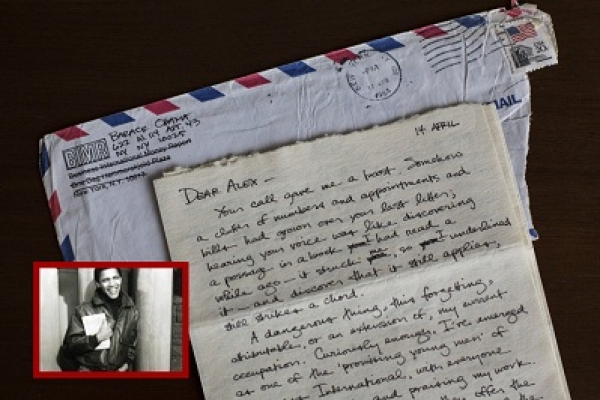 BARACK OBAMA
622 W. 114 APT. 43
NY NY 10025
BIMR
Business International Money Report
One Dag Hammarskjold Plaza
New York, N.Y. 10017
NEW YORK
PM
1983
USA
MAIL
14 APRIL
DEAR ALEX —
Your call gave me a boost. Somehow
a clutter of numbers and appointments and
bills had grown over your last letter;
hearing your voice was like discovering
a passage in a book I had read a
while ago — it struck , so I underlined
it — and discover that it still applies,
still strikes a chord.
A dangerous thing, this forgetting,
attributable, or an extension of, my current
occupation. Curiously enough, I've emerged
as one of the 'promising young men' of
International, with everyone
and praising my work.
they offer the
the